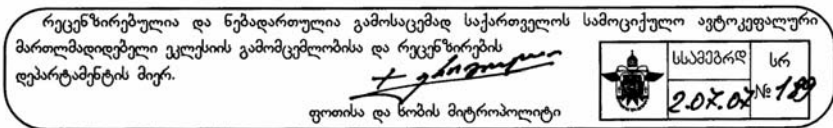 რეცენზირებულია და ნებადართულია გამოსაცემად საქართველოს სამოციქულო ავტოკეფალური
მართლმადიდებელი ეკლესიის გამომცემლობისა და რეცენზირების
დეპარტამენტის მიერ.
ფოთისა და ხობის მიტროპოლიტი
სსამებრდ სრ
2.07.07 № 189